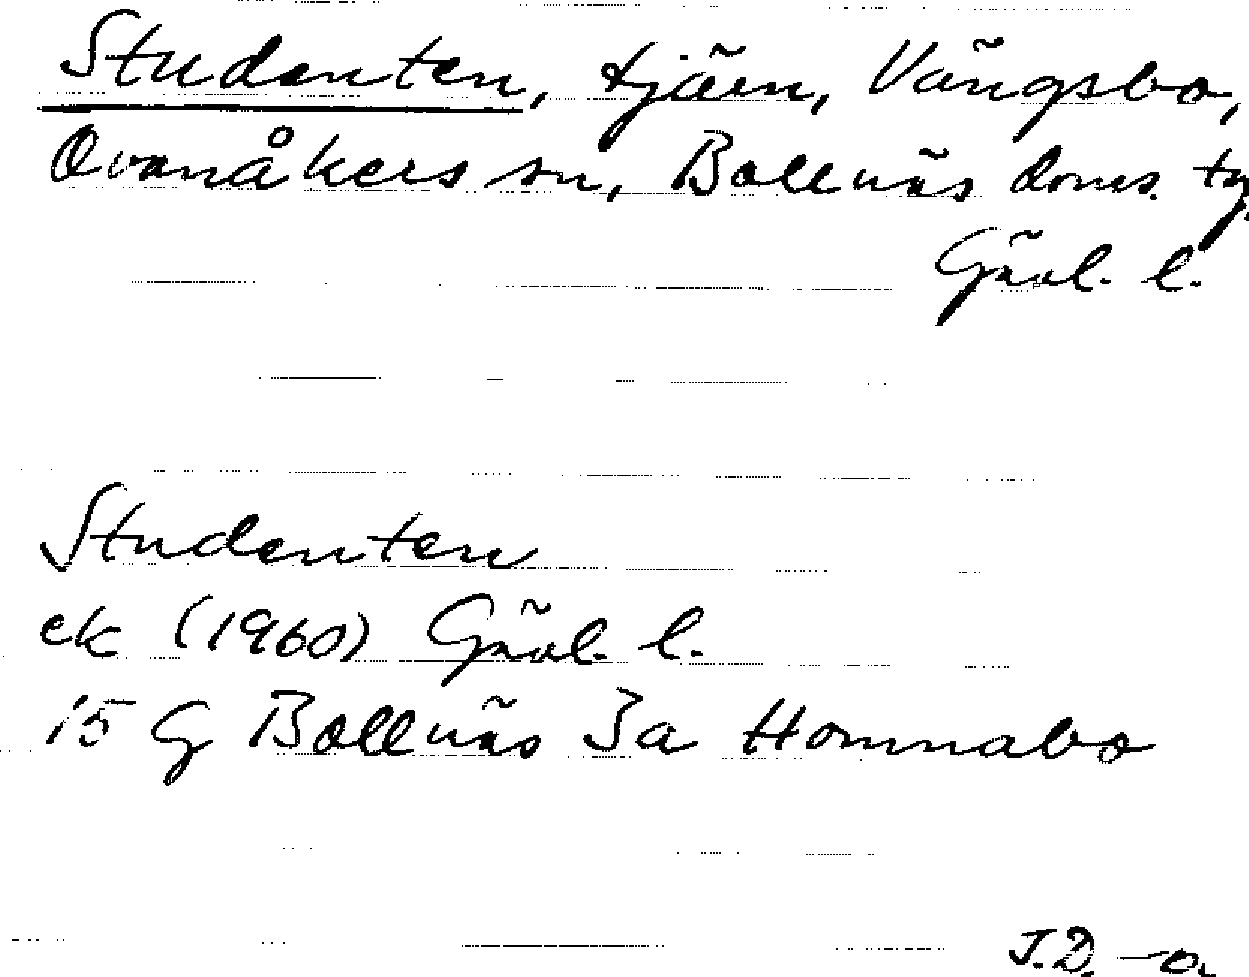 Studenten, tjärn, Vängsbo,
Ovanåkers sn, Bollnäs doms. tg.
Gävl. l.
Studenten
ek (1960) Gävl. l.
15 G Bollnäs 3a Homnabo
J.D.